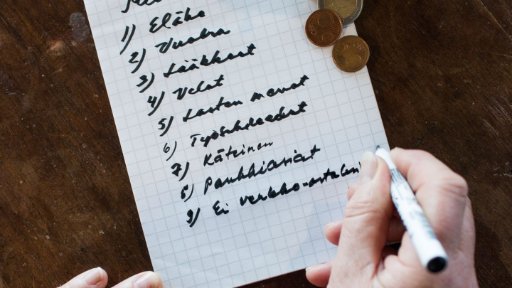 1) Eläke
2) Vuokra
3) Lääkkeet
4) Velat
5) Lasten menot
6)
7) Käteinen
8) Pankkiasiat
9) Ei verkko-